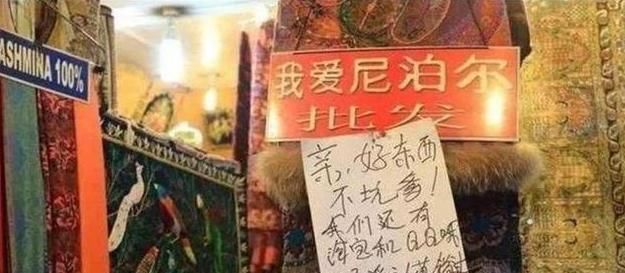 ASHMINA 100%
我爱尼泊尔
批发
亲,好东西
不坑爹!
我们还有
淘宝和QQ哦